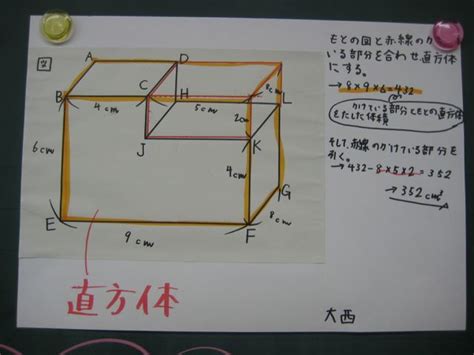 図
A
D
B
C
H
8cm
L
4cm
5cm
2cm
J
K
6cm
4cm
G
E
9cm
F
8cm
直方体
もとの図と赤線のか
いる部分を合わせ直方体
にする。
→8×9×6=432
かけている部分ともとの直方体
をたした体積
そして、赤線のかけている部分を
引く。
→432-8×5×2=352
→352cm³
大西